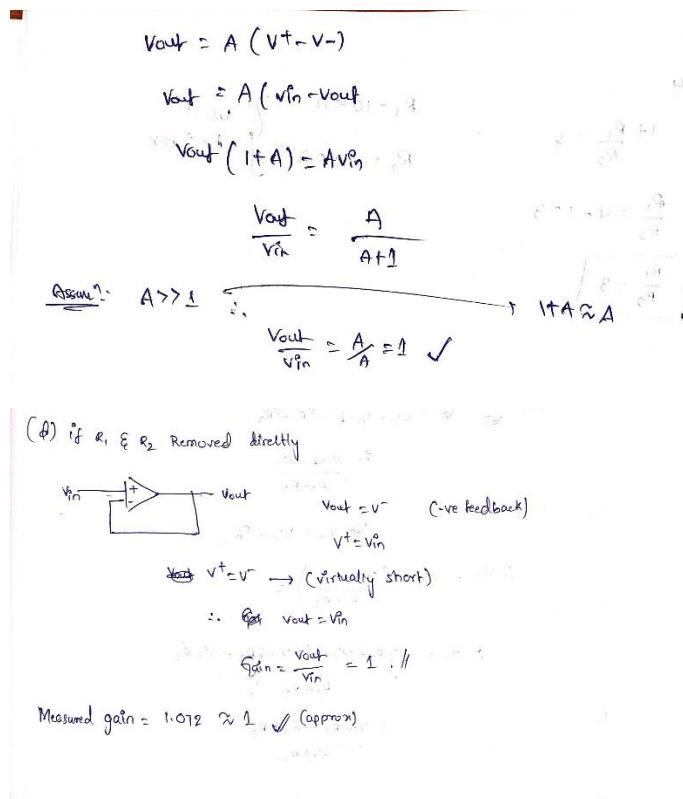 Vout = A (V+ - V-)
Vout = A ( Vin - Vout
Vout (1+A) = AVin
Vout / Vin = A / A+1
Assume: A>>1 ∴ 1+A ≈ A
Vout / Vin = A/A = 1 ✓
(d) if R1 & R2 Removed directly
Vin + - Vout
Vout = V- (-ve feedback)
V+ = Vin
V+ = V- → (virtually short)
∴ Vout = Vin
Gain = Vout / Vin = 1 . //
Measured gain = 1.072 ≈ 1. ✓ (approx)